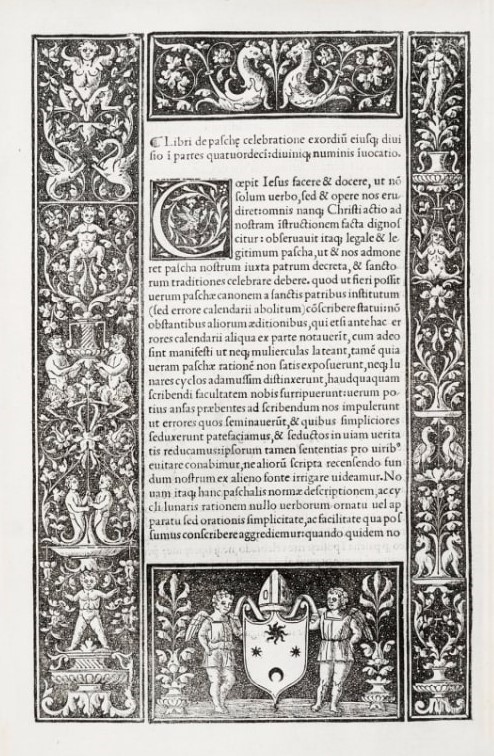 ❡ Libri de paschę celebratione exordiū eiusq; diui
sio ī partes quatuordecī: diuiniq; numinis īuocatio.
Cœpit Iesus facere & docere, ut nō
solum uerbo, sed & opere nos eru-
diret: omnis nanq; Christi actio ad
nostram īstructionem facta dignos
citur: obseruauit itaq; legale & le-
gitimum pascha, ut & nos admone
ret pascha nostrum iuxta patrum decreta, & sancto-
rum traditiones celebrare debere. quod ut fieri possit
uerum paschæ canonem a sanctis patribus institutum
(sed errore calendarii abolitum) cōscribere statui: nō
obstantibus aliorum æditionibus, qui etsi ante hac er
rores calendarii aliqua ex parte notauerit, cum adeo
sint manifesti ut neq; mulierculas lateant, tamē quia
ueram paschæ rationē non satis exposuerunt, neq; lu
nares cyclos adamussim distinxerunt, haudquaquam
scribendi facultatem nobis surripuerunt: uerum po-
tius ansas præbentes ad scribendum nos impulerunt
ut errores quos seminauerūt, & quibus simpliciores
seduxerunt patefaciamus, & seductos in uiam uerita
tis reducamus: ipsorum tamen sententias pro uirib⁹
euitare conabimur, ne aliorū scripta recensendo fun
dum nostrum ex alieno fonte irrigare uideamur. No
uam itaq; hanc paschalis normæ descriptionem, ac cy
cli lunaris rationem nullo uerborum ornatu uel ap
paratu sed orationis simplicitate, ac facilitate qua pos
sumus conscribere aggrediemur: quando quidem no